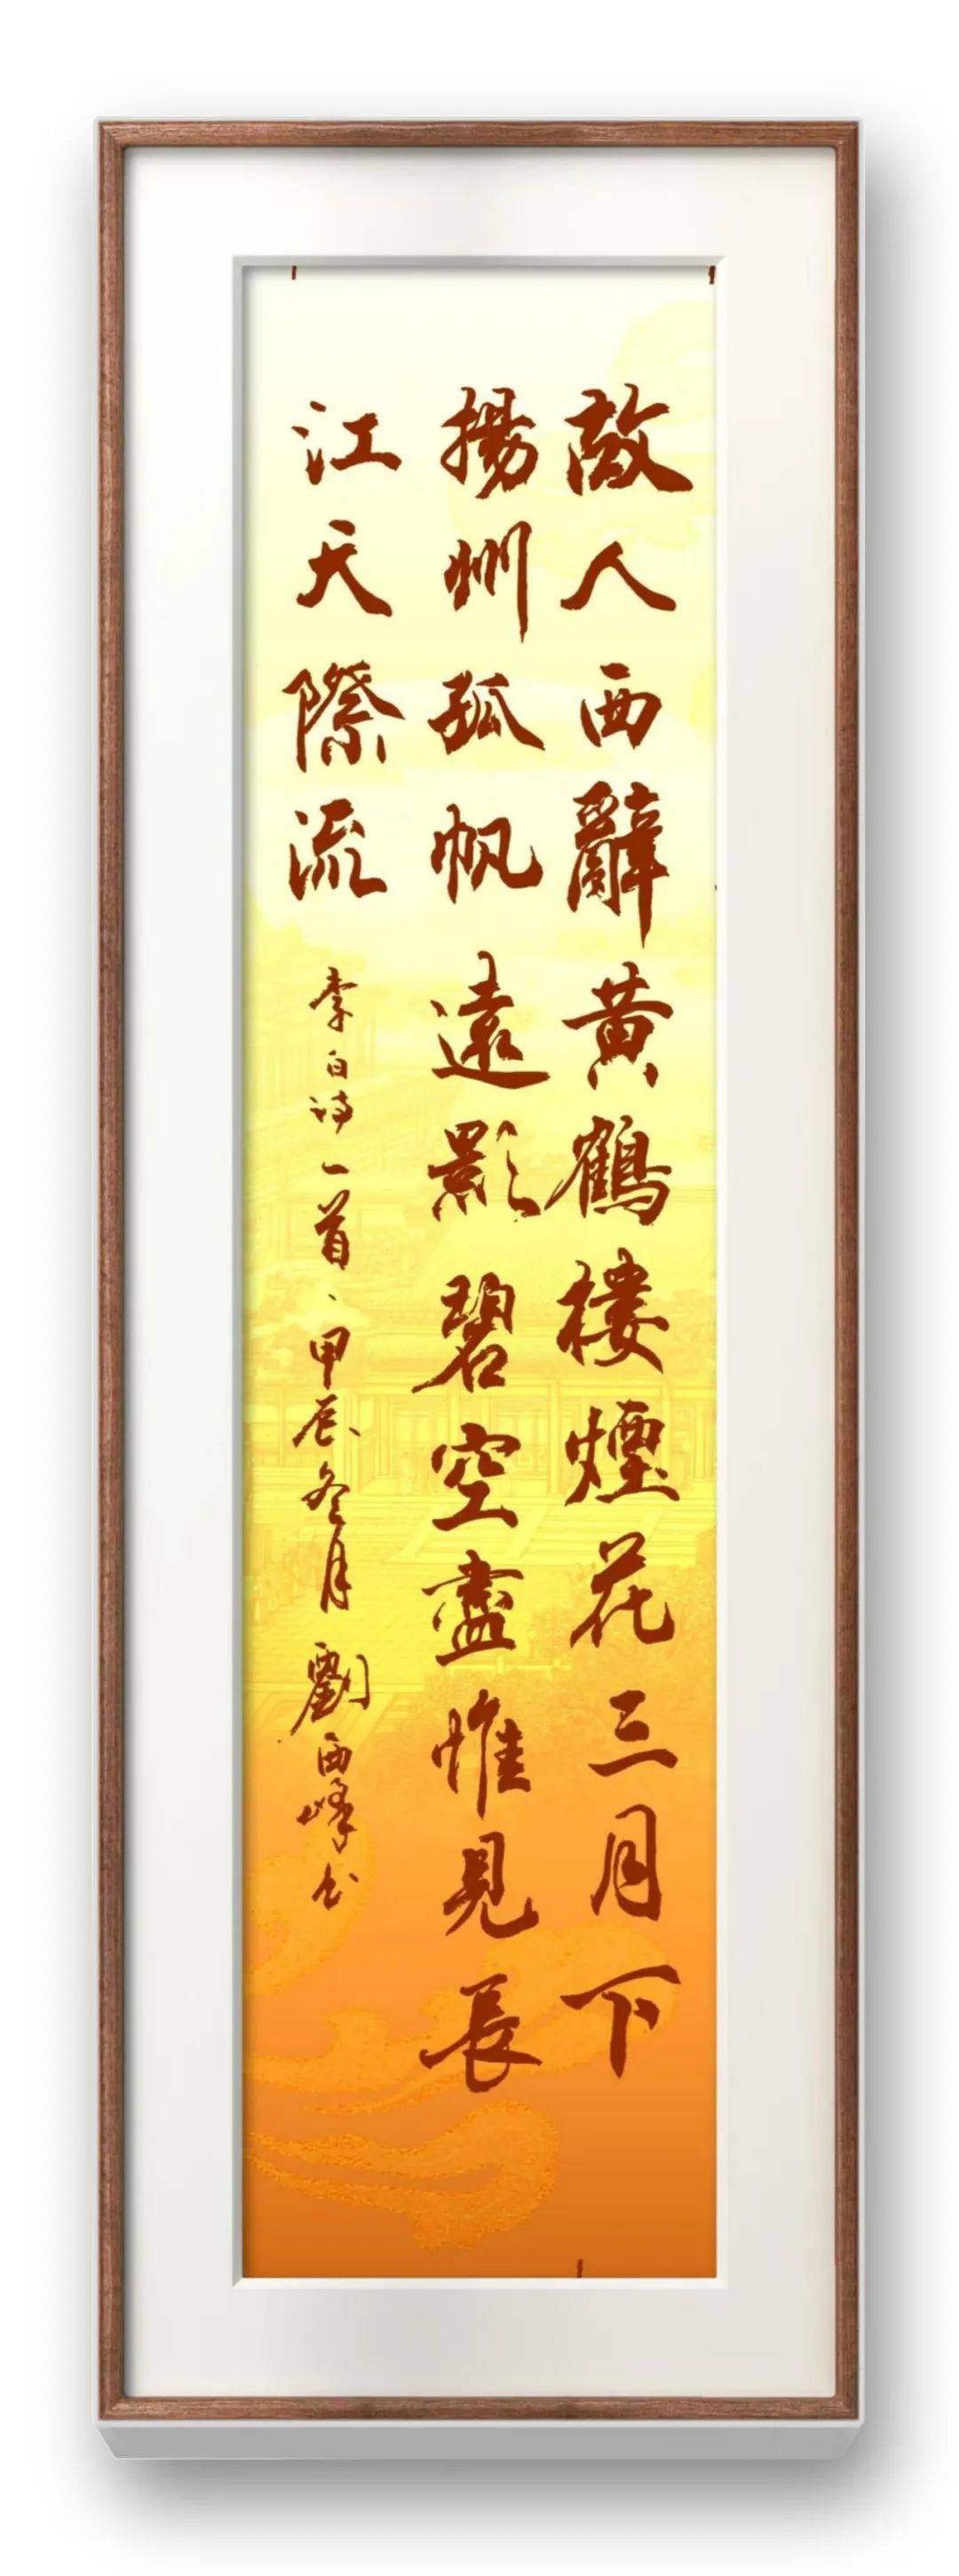 故人西辭黃鶴樓煙花三月下
揚州孤帆遠影碧空盡惟見長
江天際流
李白诗一首、甲辰冬月劉西峰书